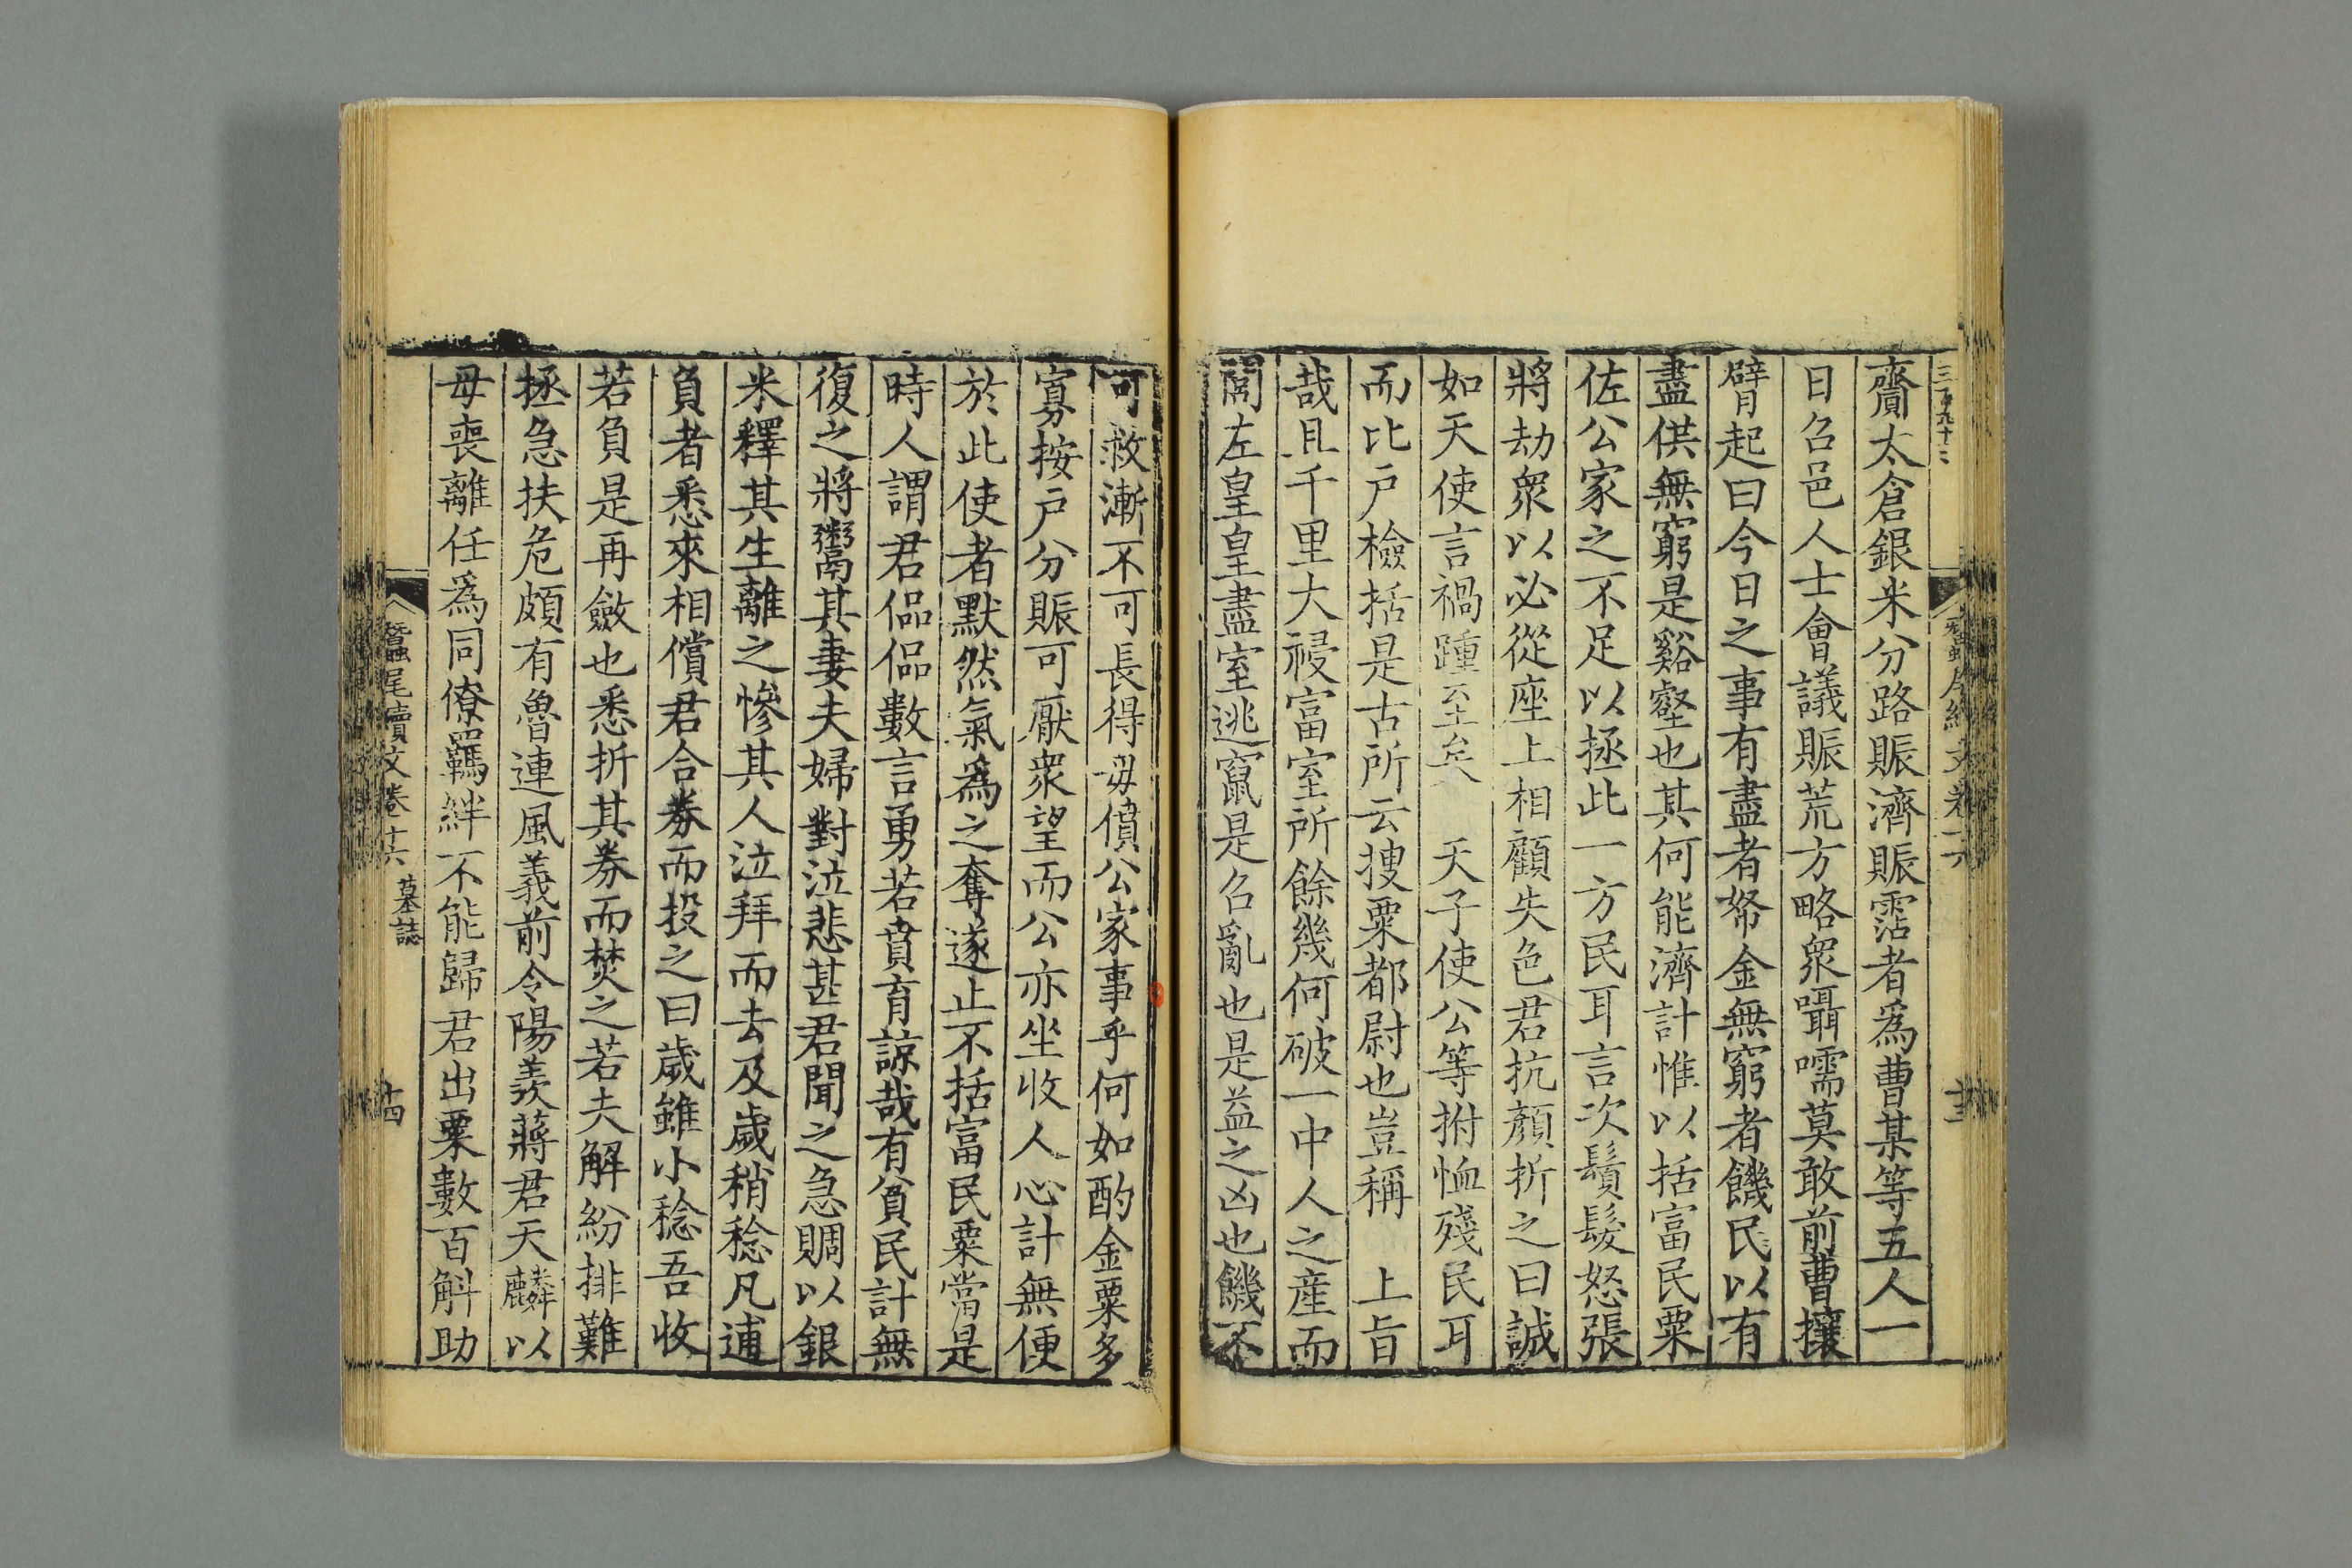 齎太倉銀米分路賑濟賑霑者爲曹某等五人一
日召邑人士會議賑荒方略衆囁嚅莫敢前曹攘
臂起曰今日之事有盡者帑金無窮者饑民以有
盡供無窮是谿壑也其何能濟計惟以括富民粟
佐公家之不足以拯此一方民耳言次鬚髮怒張
將劫衆以必從座上相顧失色君抗顏折之曰誠
如天使言禍踵至矣 天子使公等拊恤殘民耳
而比戸檢括是古所云捜粟都尉也豈稱 上旨
哉且千里大祲富室所餘幾何破一中人之産而
閭左皇皇盡室逃竄是召亂也是益之凶也饑不
可救漸不可長得毋僨公家事乎何如酌金粟多
寡按戸分賑可厭衆望而公亦坐收人心計無便
於此使者默然氣爲之奪遂止不括富民粟當是
時人謂君偘偘數言勇若賁育諒哉有貧民計無
復之將鬻其妻夫婦對泣悲甚君聞之急賙以銀
米釋其生離之慘其人泣拜而去及歲稍稔凡逋
負者悉來相償君合券而投之曰歲雖小稔吾收
若負是再斂也悉折其券而焚之若夫解紛排難
拯急扶危頗有魯連風義前令陽羨蔣君天麟以
母喪離任爲同僚羈絆不能歸君出粟數百斛助
蠶尾續文卷十六 墓誌 十四